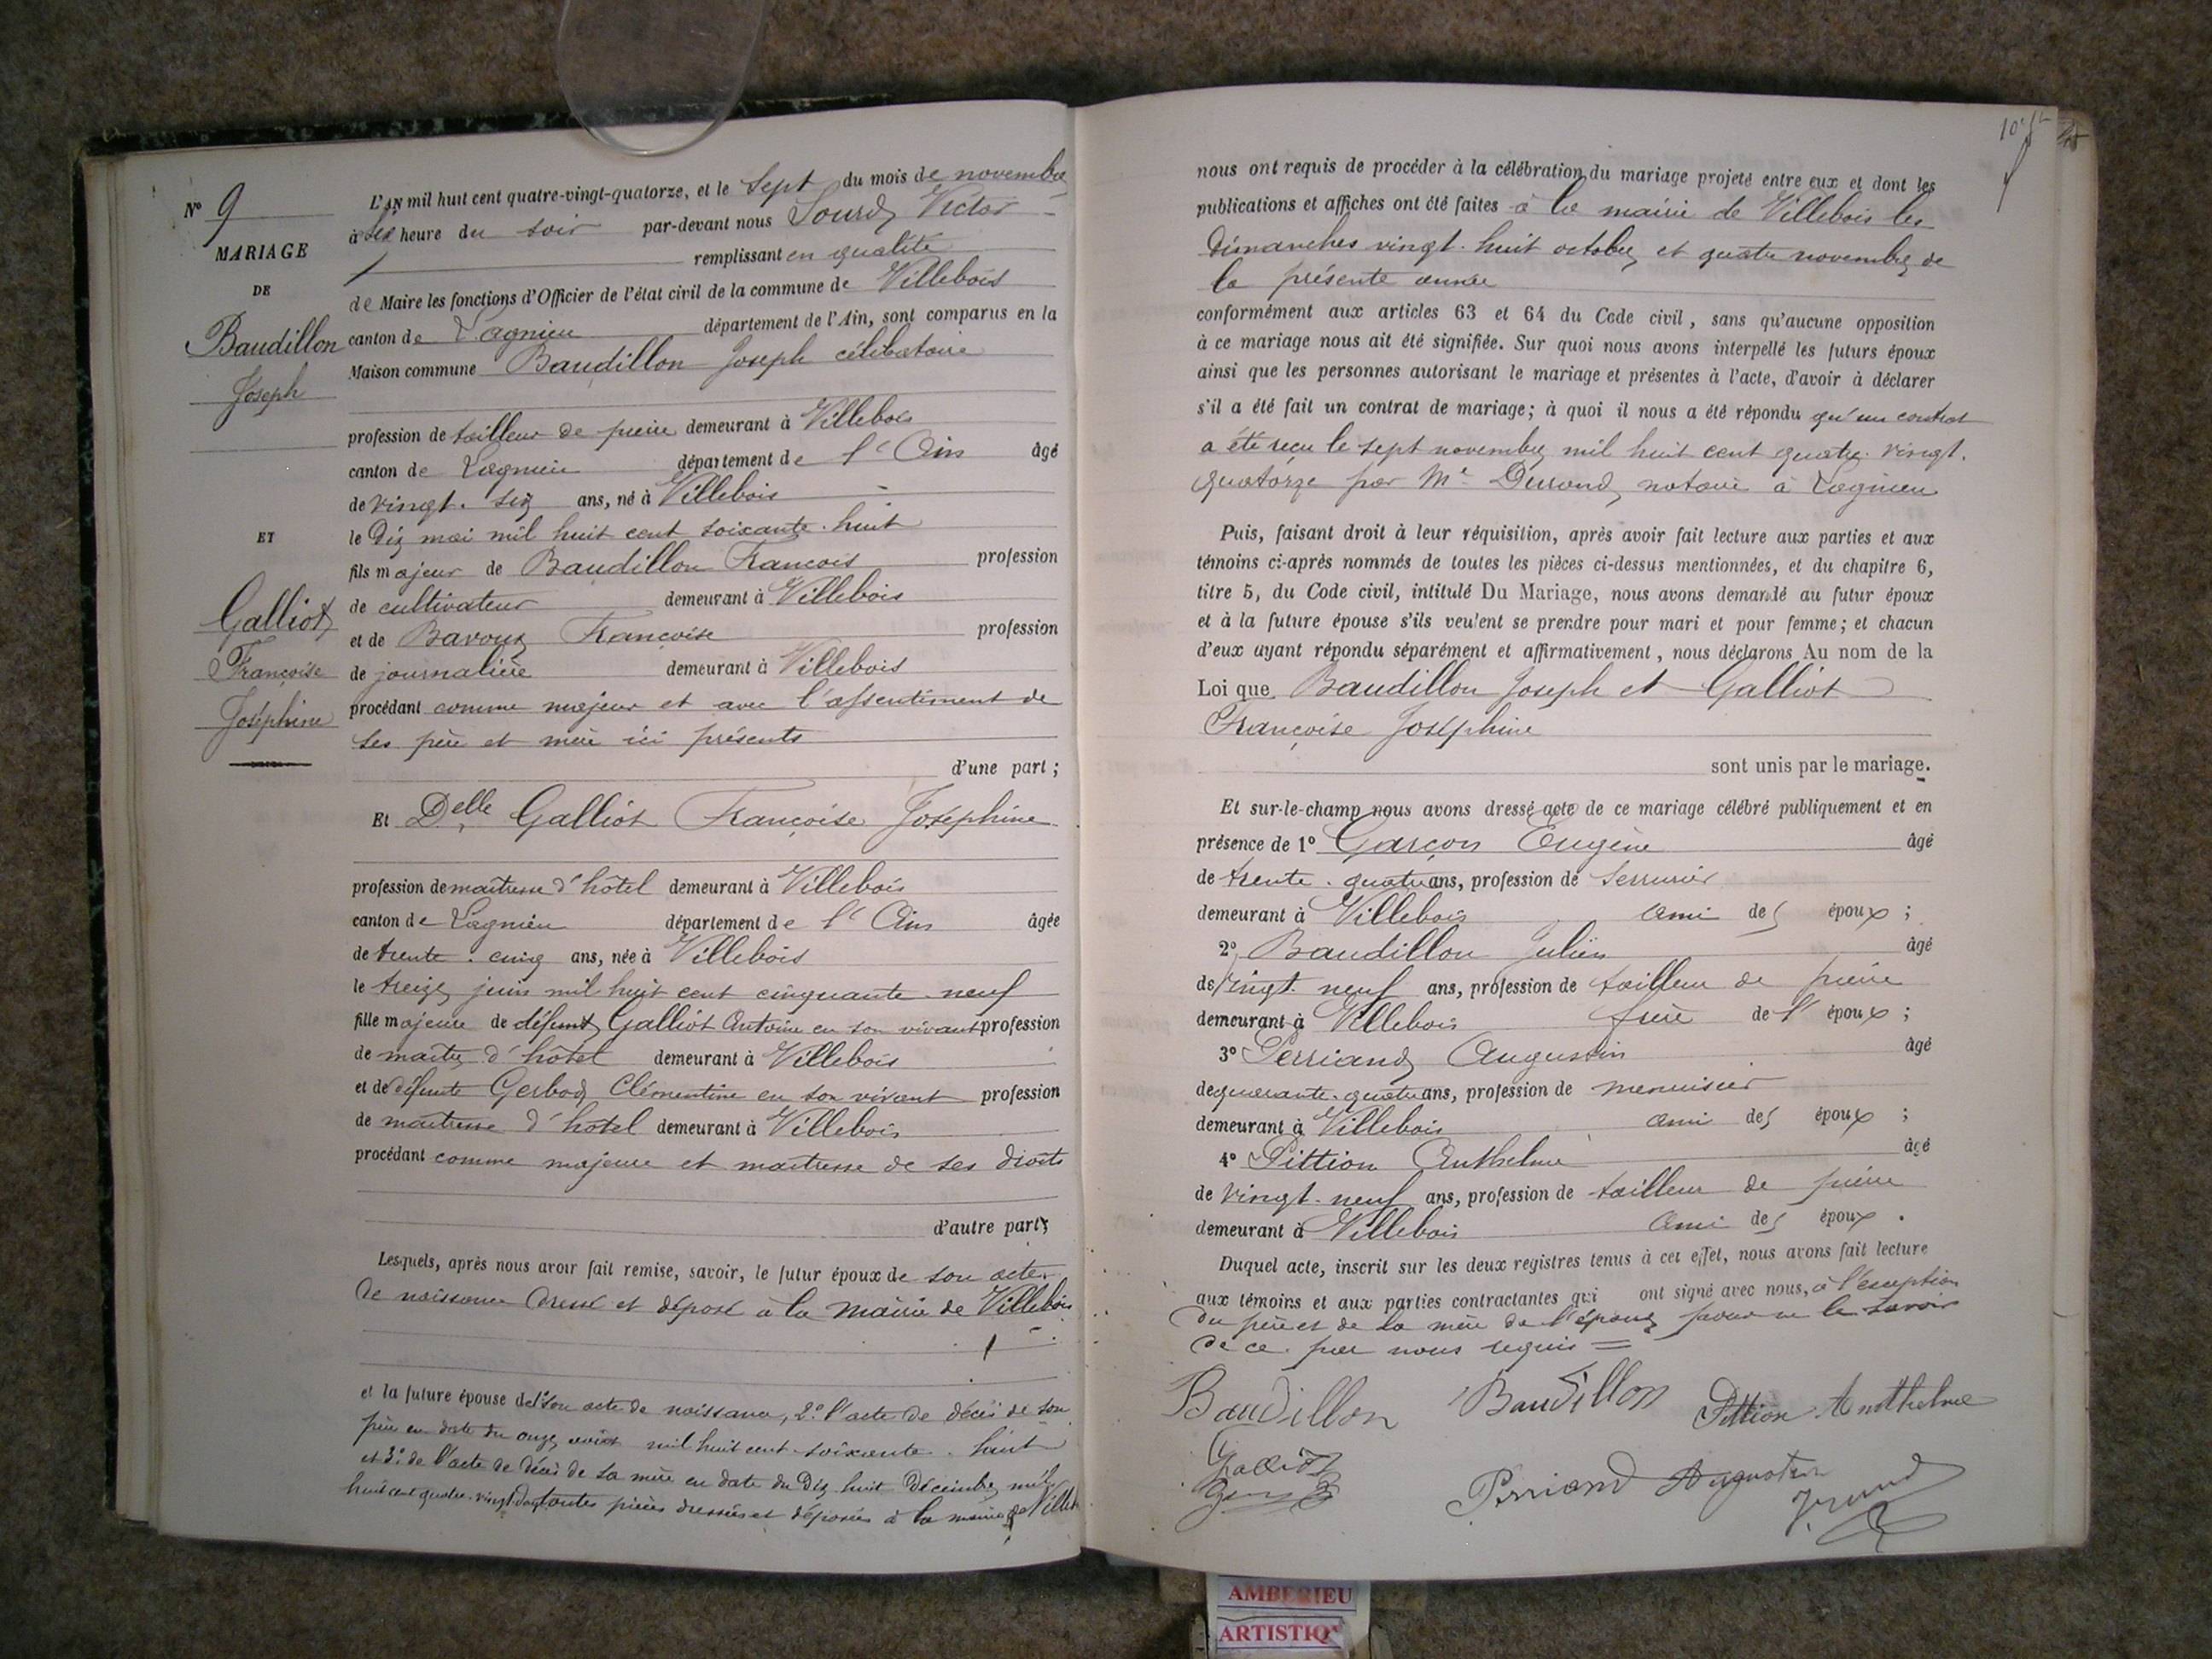 N° 9
MARIAGE
DE
Baudillon
Joseph
ET
Galliot
Françoise
Joséphine
L'AN mil huit cent quatre-vingt-quatorze, et le Sept du mois de novembre
à six heure du soir par-devant nous Lourd Victor
remplissant en qualité
de Maire les fonctions d'Officier de l'état civil de la commune de Villebois
canton de Lagnieu département de l'Ain, sont comparus en la
Maison commune Baudillon Joseph célibataire
profession de tailleur de pierre demeurant à Villebois
canton de Lagnieu département de l'Ain âgé
de vingt-six ans, né à Villebois
le dix mai mil huit cent soixante-huit
fils majeur de Baudillon Francois profession
de cultivateur demeurant à Villebois
et de Bavoux Françoise profession
de journalière demeurant à Villebois
procédant comme majeur et avec l'assentiment de
ses père et mère ici présents
d'une part ;
Et Delle Galliot Françoise Josephine
profession de maîtresse d'hôtel demeurant à Villebois
canton de Lagnieu département de l'Ain âgée
de trente-cinq ans, née à Villebois
le treize juin mil huit cent cinquante-neuf
fille majeure de défunt Galliot Antoine en son vivant profession
de maître d'hôtel demeurant à Villebois
et de défunte Gerbod Clémentine en son vivant profession
de maitresse d'hôtel demeurant à Villebois
procédant comme majeure et maitresse de ses droits
d'autre part ;
Lesquels, après nous avoir fait remise, savoir, le futur époux de son acte
de naissance dressé et déposé à la mairie de Villebois
et la future épouse de 1° son acte de naissance, 2° l'acte de décès de son
père en date du onze août mil huit cent soixante-huit
et 3° de l'acte de décès de sa mère en date du dix huit décembre mil
huit cent quatre-vingt toutes pièces dressées et déposées à la mairie de Villeb
10
nous ont requis de procéder à la célébration du mariage projeté entre eux et dont les
publications et affiches ont été faites à la mairie de Villebois les
dimanches vingt-huit octobre et quatre novembre de
la présente année
conformément aux articles 63 et 64 du Code civil, sans qu'aucune opposition
à ce mariage nous ait été signifiée. Sur quoi nous avons interpellé les futurs époux
ainsi que les personnes autorisant le mariage et présentes à l'acte, d'avoir à déclarer
s'il a été fait un contrat de mariage; à quoi il nous a été répondu qu'un contrat
a été reçu le sept novembre mil huit cent quatre-vingt-
quatorze par Me Durand notaire à Lagnieu
Puis, faisant droit à leur réquisition, après avoir fait lecture aux parties et aux
témoins ci-après nommés de toutes les pièces ci-dessus mentionnées, et du chapitre 6,
titre 5, du Code civil, intitulé Du Mariage, nous avons demandé au futur époux
et à la future épouse s'ils veulent se prendre pour mari et pour femme; et chacun
d'eux ayant répondu séparément et affirmativement, nous déclarons Au nom de la
Loi que Baudillon Joseph et Galliot
Françoise Joséphine
sont unis par le mariage.
Et sur-le-champ nous avons dressé acte de ce mariage célébré publiquement et en
présence de 1° Garçon Eugène âgé
de trente-quatre ans, profession de serrurier
demeurant à Villebois ami des époux ;
2° Baudillon Julien âgé
de vingt-neuf ans, profession de tailleur de pierre
demeurant à Villebois frère de l'époux ;
3° Perriand Augustin âgé
de quarante-quatre ans, profession de menuisier
demeurant à Villebois ami des époux ;
4° Pittion Anthelme âgé
de vingt-neuf ans, profession de tailleur de pierre
demeurant à Villebois ami des époux .
Duquel acte, inscrit sur les deux registres tenus à cet effet, nous avons fait lecture
aux témoins et aux parties contractantes qui ont signé avec nous, à l'exception
du père et de la mère de l'époux pour ne le savoir
de ce par nous requis =
Baudillon Baudillon Pittion Anthelme
Galliot
Perriand Augustin
AMBERIEU
ARTISTIQ